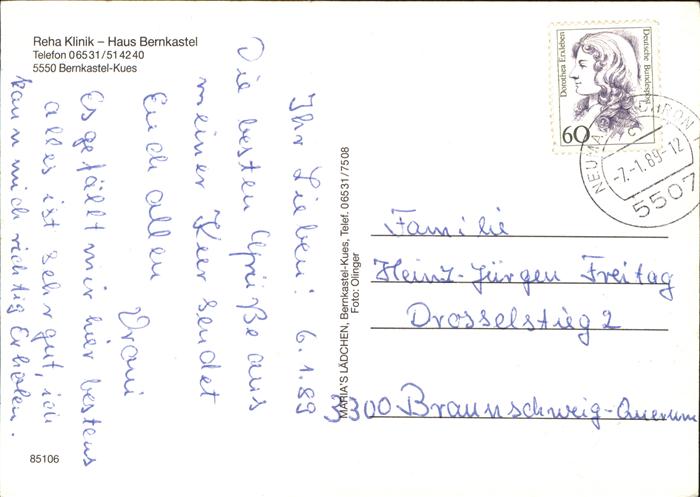 Reha Klinik – Haus Bernkastel
Telefon 06531/514240
5550 Bernkastel-Kues
Ihr Lieben! 6.1.89
Die besten Grüße aus
meiner Kur sendet
Euch allen
Omi
Es gefällt mir hier bestens
alles ist sehr gut, ich
kann mich richtig Erholen.
85106
MARIA'S LÄDCHEN, Bernkastel-Kues, Telef. 06531/7508
Foto: Olinger
Dorothea Erxleben
Deutsche Bundespost
60
NEUMA
-7.-1.89-12
5507
Familie
Heinz-Jürgen Freitag
Drosselstieg 2
3300 Braunschweig-Querum